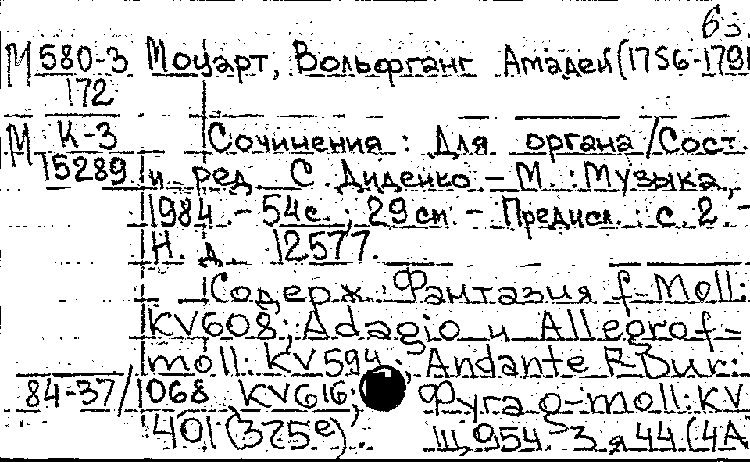 63
М 580-3 Моцарт, Вольфганг Амадей (1756-1791
172
М К-3 Сочинения : Для органа /Сост.
15289 и ред. С. Диденко. - М. : Музыка,
1984. - 54с. ; 29см. - Предисл.: с. 2. -
Н. д. 12577.
Содерж.: Фантазия f-Moll:
KV608; Adagio и Allegro f-
moll: KV594; Andante F Dur:
84-37/1068 KV616; Фуга g-moll: KV
401 (375e). Щ,954. 3 я 44 (4А